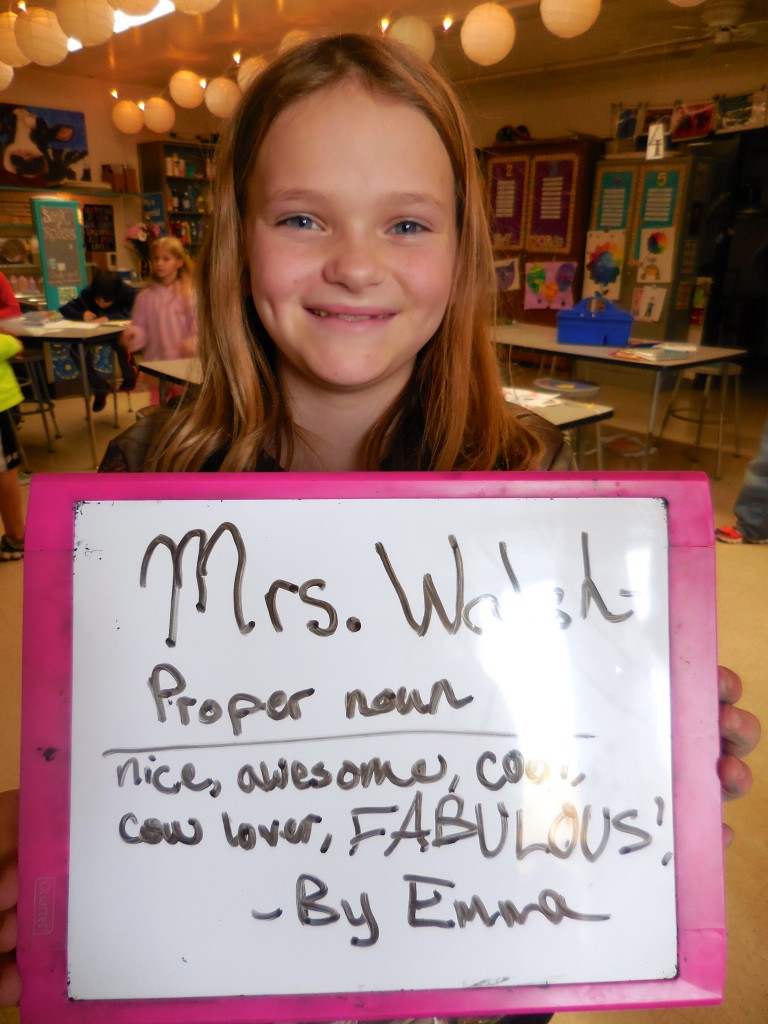 Mrs. Walsh
Proper noun
nice, awesome, cool,
cow lover, FABULOUS!
- By Emma
Quartet
4
2
5